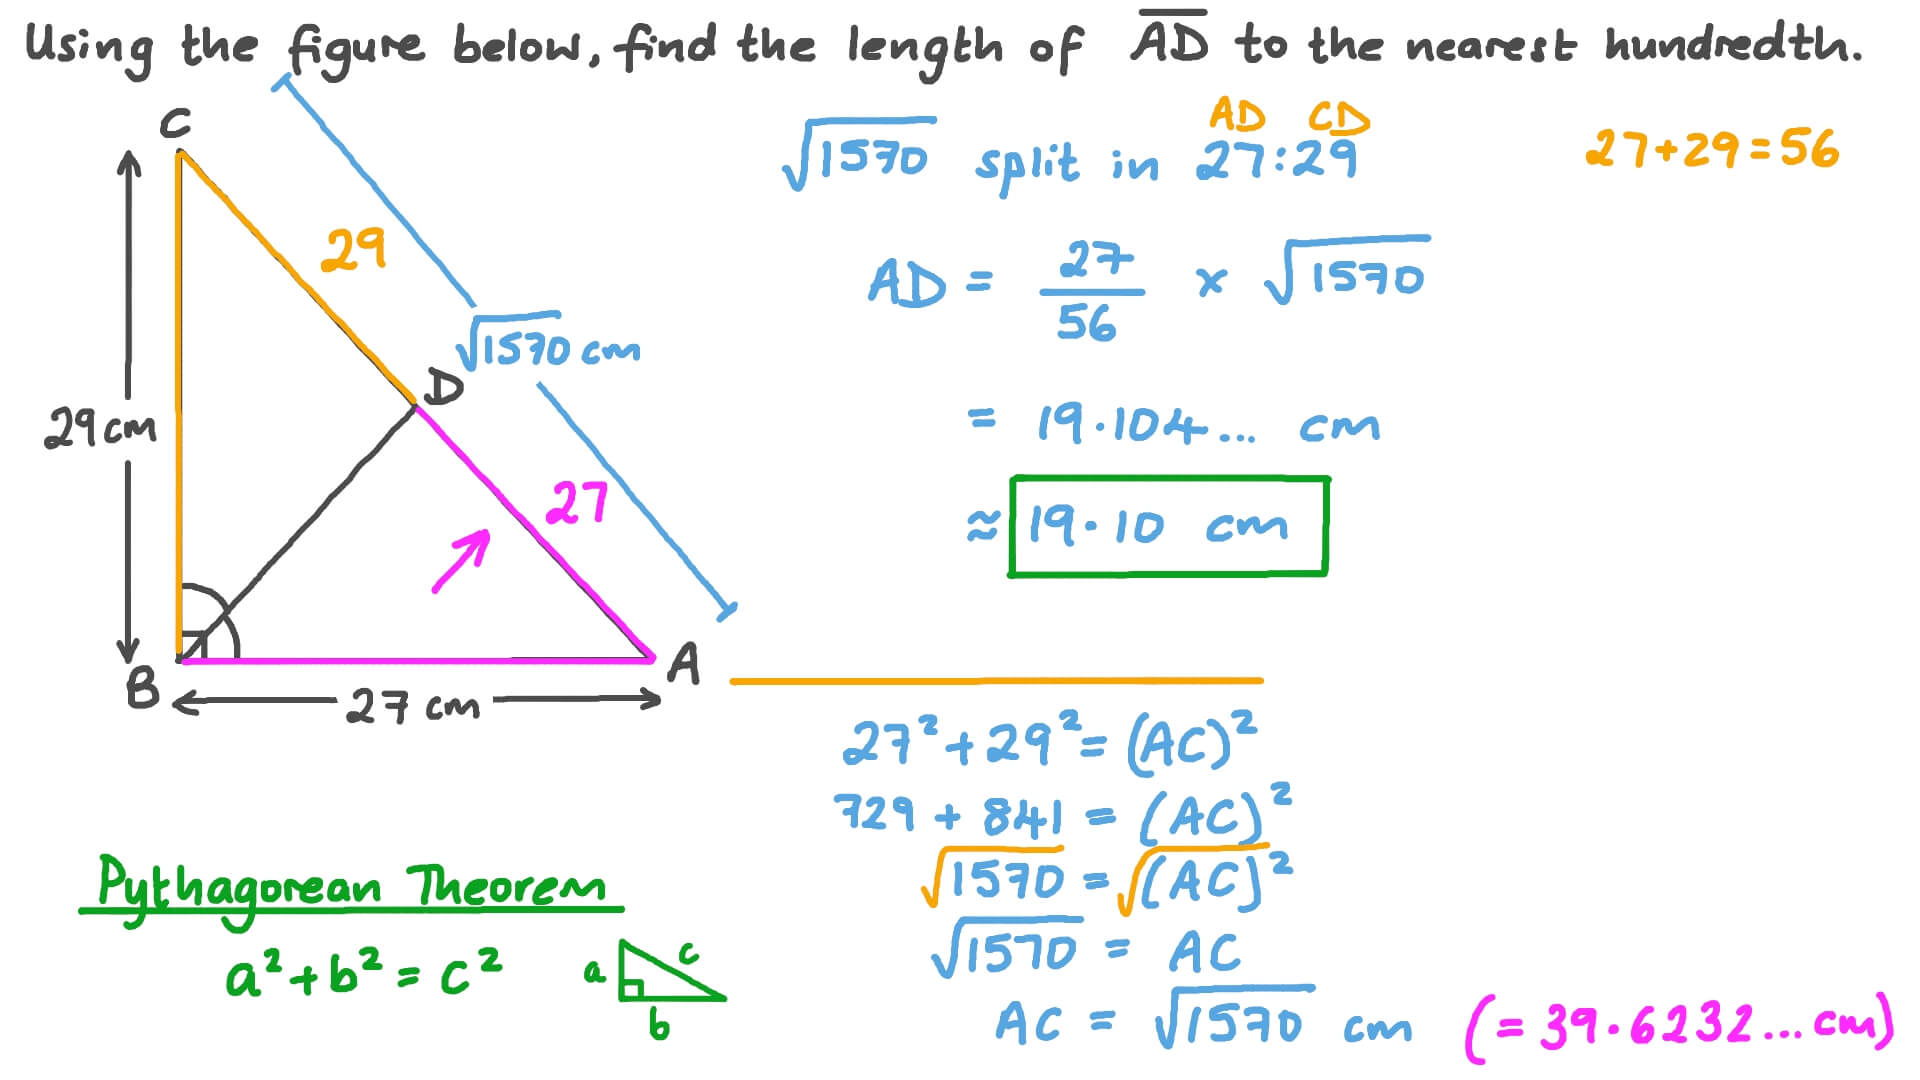 Using the figure below, find the length of AD to the nearest hundredth.
C
29
29 cm
√1570 cm
D
27
B
A
27 cm
AD CD
√1570 split in 27:29
27+29=56
AD = 27/56 × √1570
= 19.104... cm
≈ 19.10 cm
27² + 29² = (AC)²
729 + 841 = (AC)²
√1570 = √(AC)²
√1570 = AC
AC = √1570 cm (= 39.6232... cm)
Pythagorean Theorem
a² + b² = c²
a
c
b